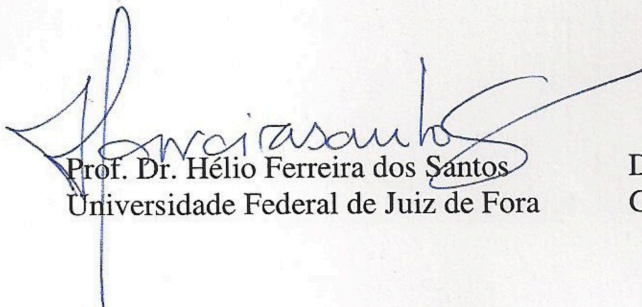 Prof. Dr. Hélio Ferreira dos Santos
Universidade Federal de Juiz de Fora